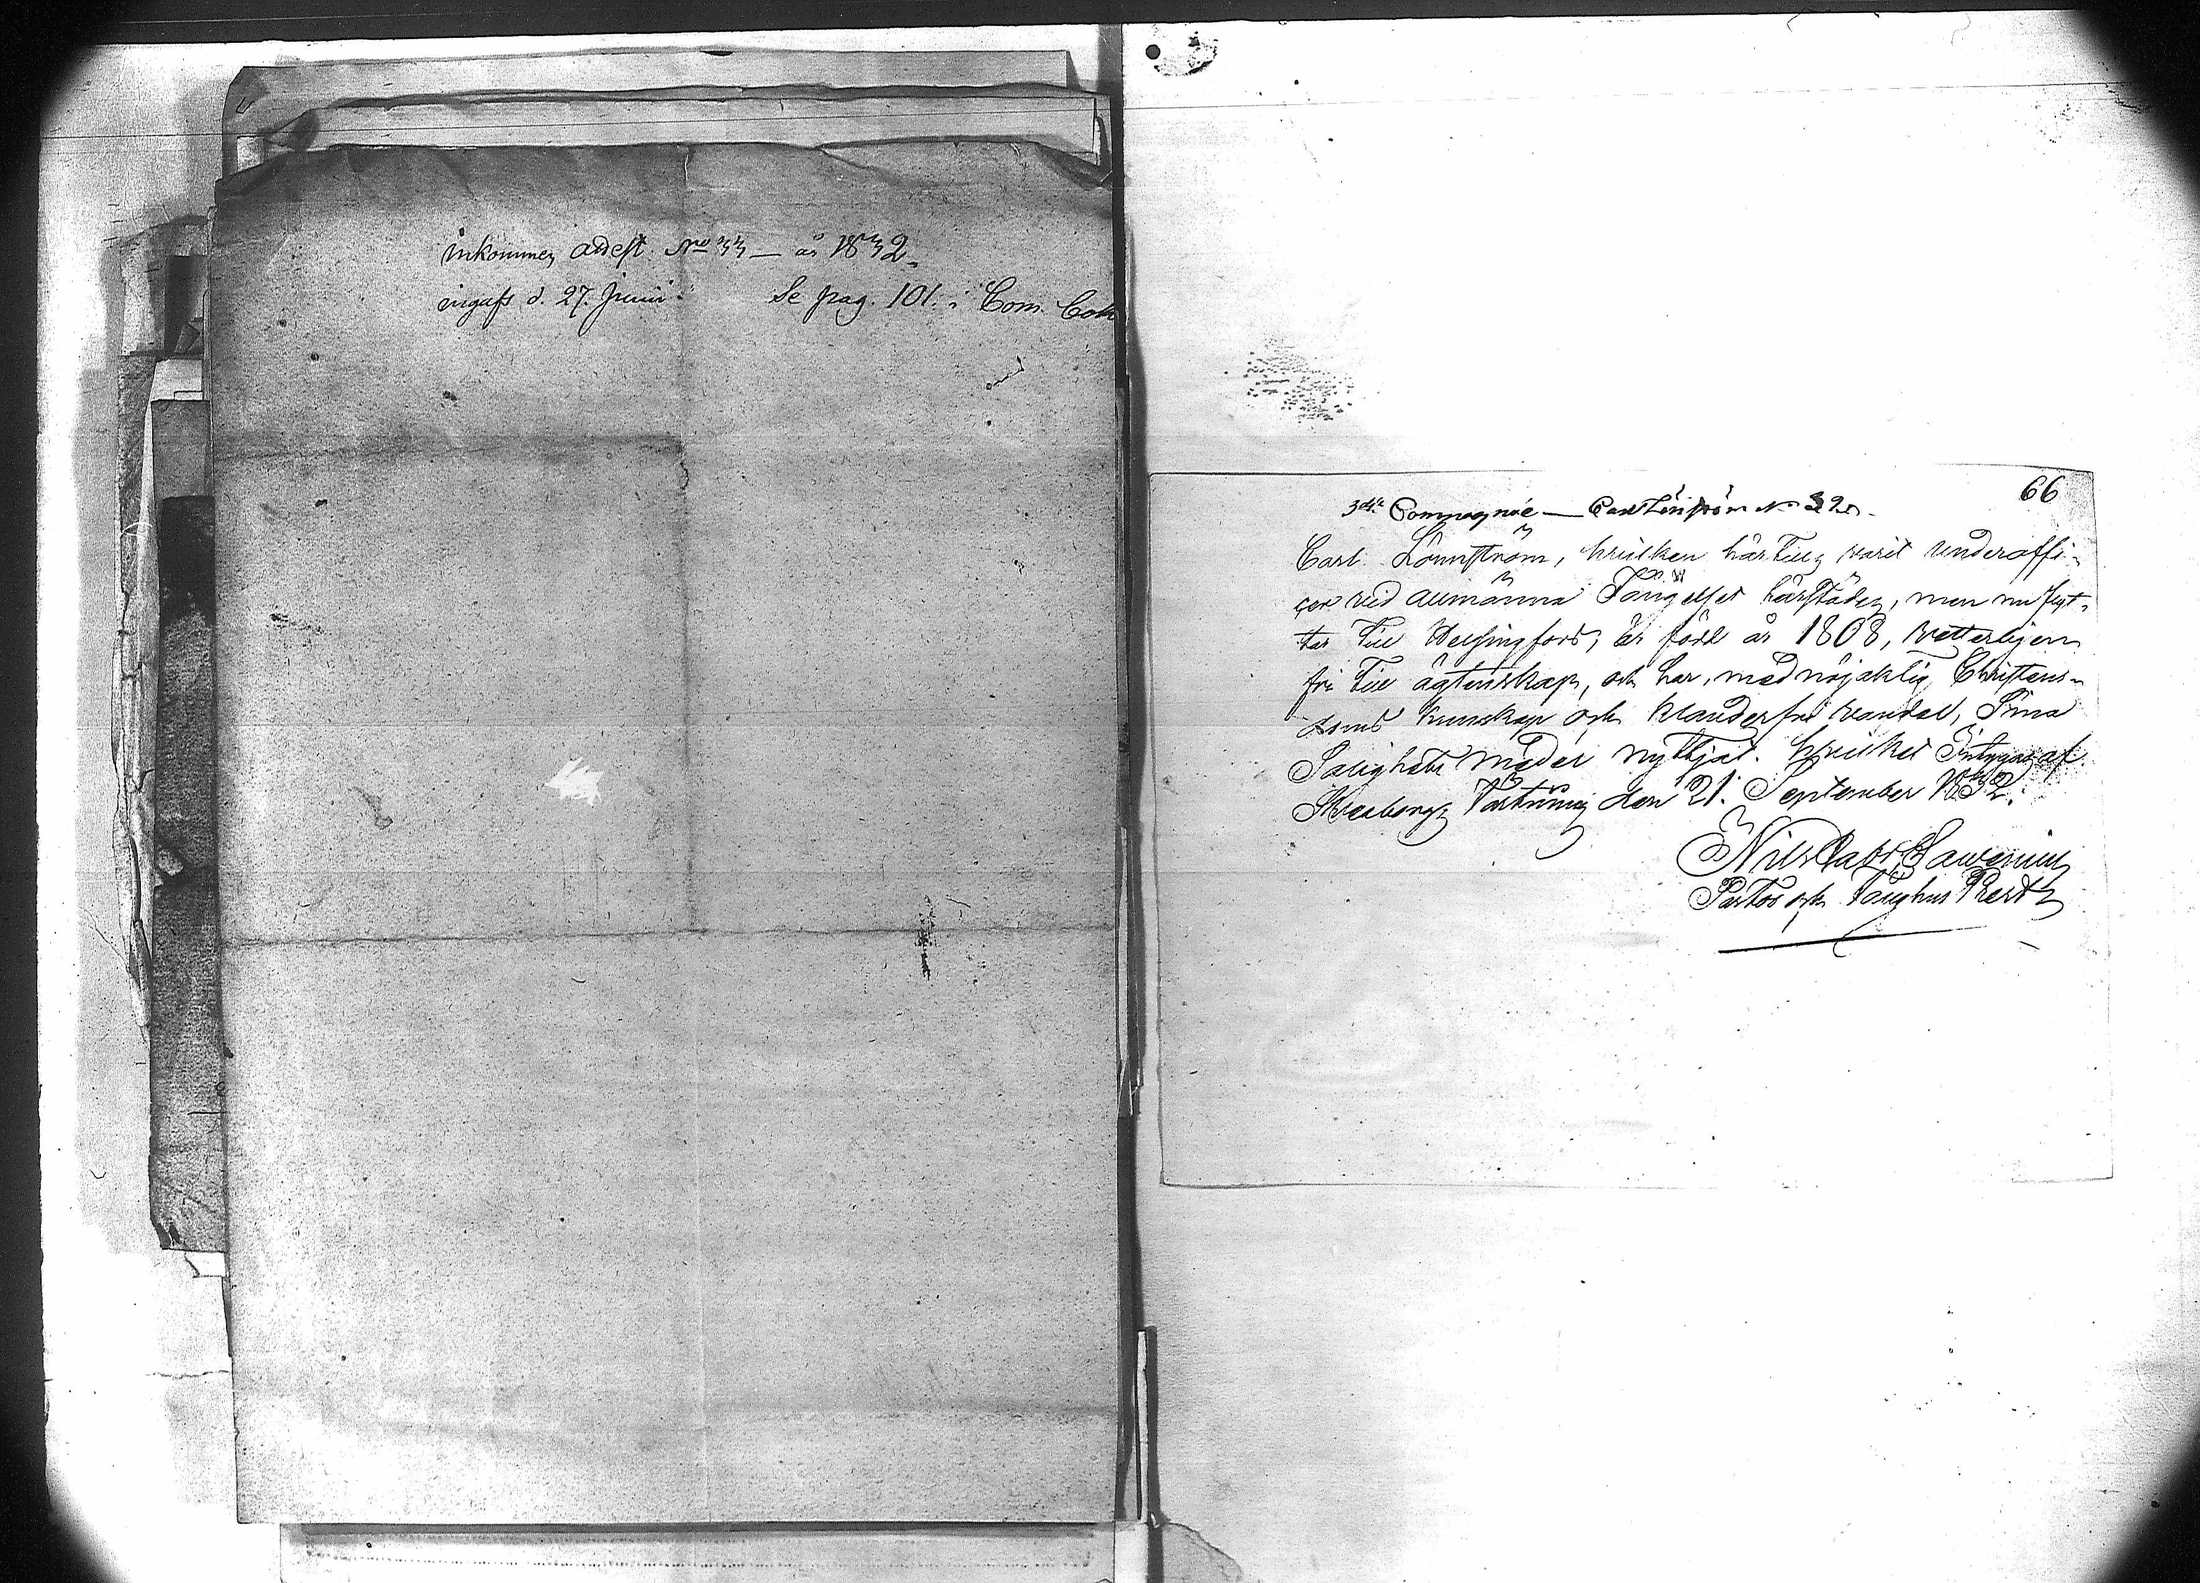 inkommen attest No 33 — år 1832.
ingafs d. 27. Junii. Se pag. 101. i Com. Bok
66
3die Compagnie — Carl Lönström No 32
Carl Lönnström, hvilken härtills varit Underoffi-
cer vid allmänna Fängelset härstädes, men nu flyt-
tar till Helsingfors, är född år 1808, vetterligen
fri till ägtenskap, och har, med nöjaktig Christen-
doms kunskap och klanderfri vandel, Sina
Salighets medel nyttjat. hvilket Intygas af
Sveaborgs Fästning den 21. September 1832.
Nils
Pastor och Tukthus Pred.